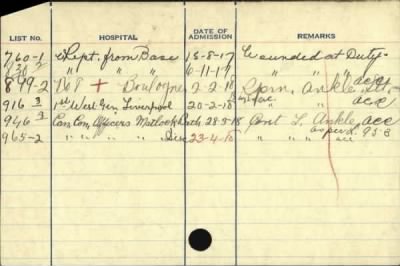 LIST No. HOSPITAL DATE OF ADMISSION REMARKS
760-1 Rept. from Base 15-8-17 Wounded at Duty.
" " " 6-11-17 " "
899-2 No 8 + Boulogne 2-2-18 Sprn. Ankle acc
916 3 1st West. Gen. Liverpool 20-2-18 acc
946 3 Can. Con. Officers Matlock Bath. 28-3-18 Cont L. Ankle acc
965-2 " " " " Disc 23-4-18 as per L. 95-8
acc